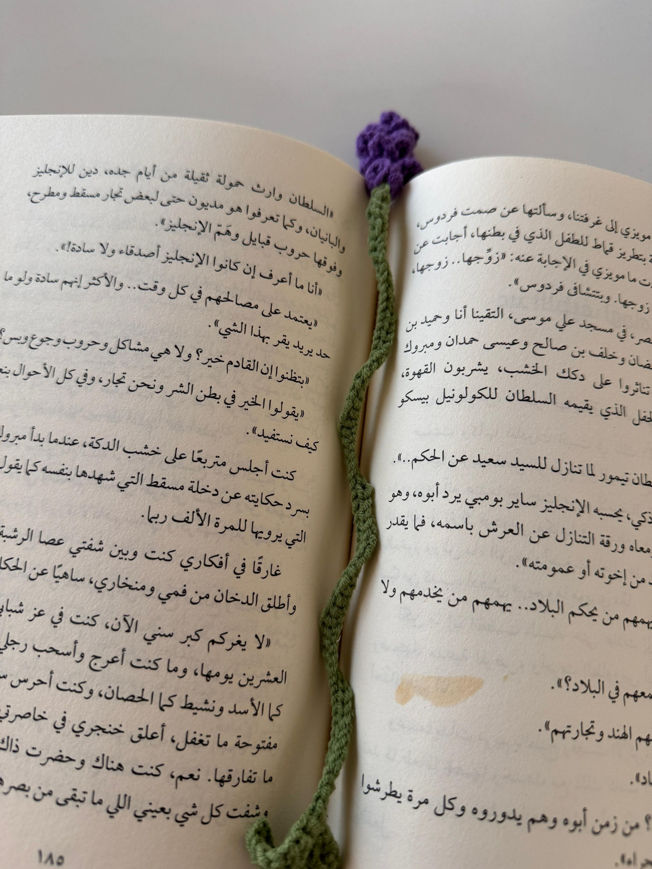 مويزي إلى غرفتنا، وسألتها عن صمت فردوس،
بتطريز قماط للطفل الذي في بطنها، أجابت عن
ت ما مويزي في الإجابة عنه: «زوِّجها.. زوجها،
زوجها. وبتتشافى فردوس».
في مسجد علي موسى، التقينا أنا وحميد بن
وخلف بن صالح وعيسى حمدان ومبروك
تناثروا على دكك الخشب، يشربون القهوة،
الذي يقيمه السلطان للكولونيل بيسكو
تيمور لما تنازل للسيد سعيد عن الحكم..».
ذكي، بحسبه الإنجليز ساير بومبي يرد أبوه، وهو
ومعاه ورقة التنازل عن العرش باسمه، فما يقدر
من إخوته أو عمومته».
يهمهم من يحكم البلاد.. يهمهم من يخدمهم ولا
في البلاد؟».
الهند وتجارتهم».
؟ من زمن أبوه وهم يدوروه وكل مرة يطرشوا
«السلطان وارث حمولة ثقيلة من أيام جده، دين للإنجليز
والبانيان، وكما تعرفوا هو مديون حتى لبعض تجار مسقط ومطرح،
وفوقها حروب قبايل وهَمّ الإنجليز».
«أنا ما أعرف إن كانوا الإنجليز أصدقاء ولا سادة!».
«يعتمد على مصالحهم في كل وقت.. والأكثر إنهم سادة ولو ما
حد يريد يقر بهذا الشي».
«بتظنوا إن القادم خير؟ ولا هي مشاكل وحروب وجوع وبس؟
«يقولوا الخير في بطن الشر ونحن تجار، وفي كل الأحوال
كيف نستفيد».
كنت أجلس متربعًا على خشب الدكة، عندما بدأ مبروك
بسرد حكايته عن دخلة مسقط التي شهدها بنفسه كما يقول
التي يرويها للمرة الألف ربما.
غارقًا في أفكاري كنت وبين شفتي عصا الرشبة
وأطلق الدخان من فمي ومنخاري، ساهيًا عن
«لا يغركم كبر سني الآن، كنت في عز
العشرين يومها، وما كنت أعرج وأسحب رجلي
كما الأسد ونشيط كما الحصان، وكنت أحرس
مفتوحة ما تغفل، أعلق خنجري في خاصرتي
ما تفارقها. نعم، كنت هناك وحضرت ذاك
وشفت كل شي بعيني اللي ما تبقى من
١٨٥